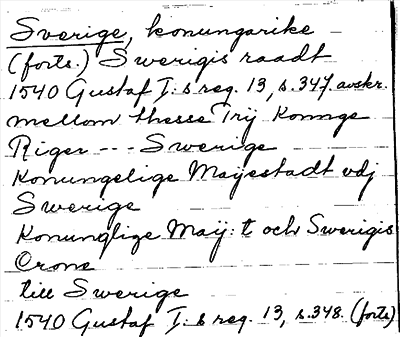 Sverige, konungarike
(forts.) Swerigis raadt
1540 Gustaf I:s reg. 13, s. 347. avskr.
mellom thesse Trij Konnge
Riger --- Swerige
Konungelige Maijestadt vdj
Swerige
Konunglige Maij:t och Swerigis
Crone
till Swerige
1540 Gustaf I:s reg. 13, s. 348. (forts)